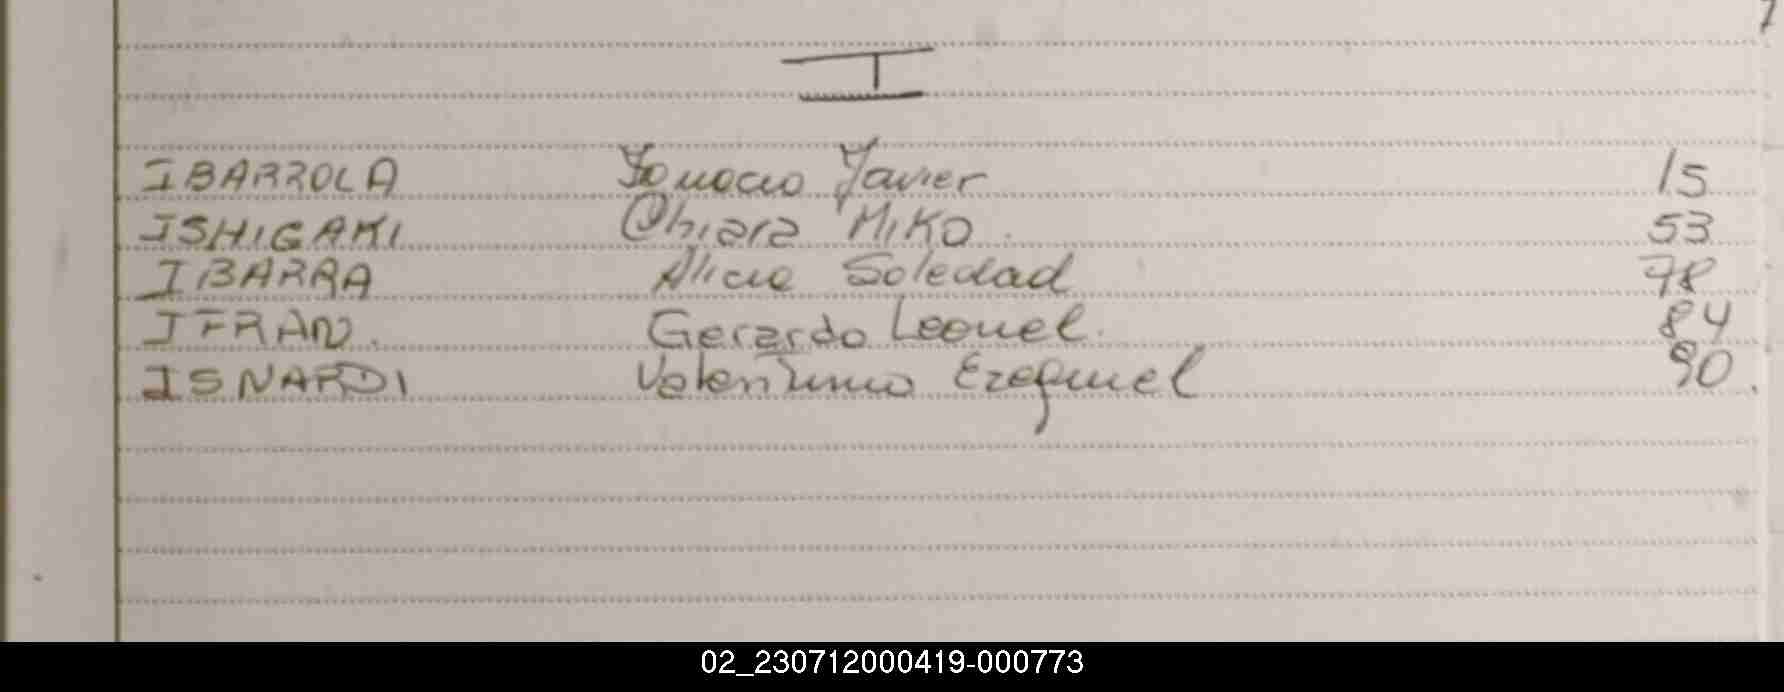 I
IBARROLA Ignacio Javier 15
ISHIGAKI Chiara MIKO. 53
IBARRA Alicia Soledad 78
IFRAN. Gerardo Leonel. 84
ISNARDI Valentino Ezequiel 90.
02_230712000419-000773